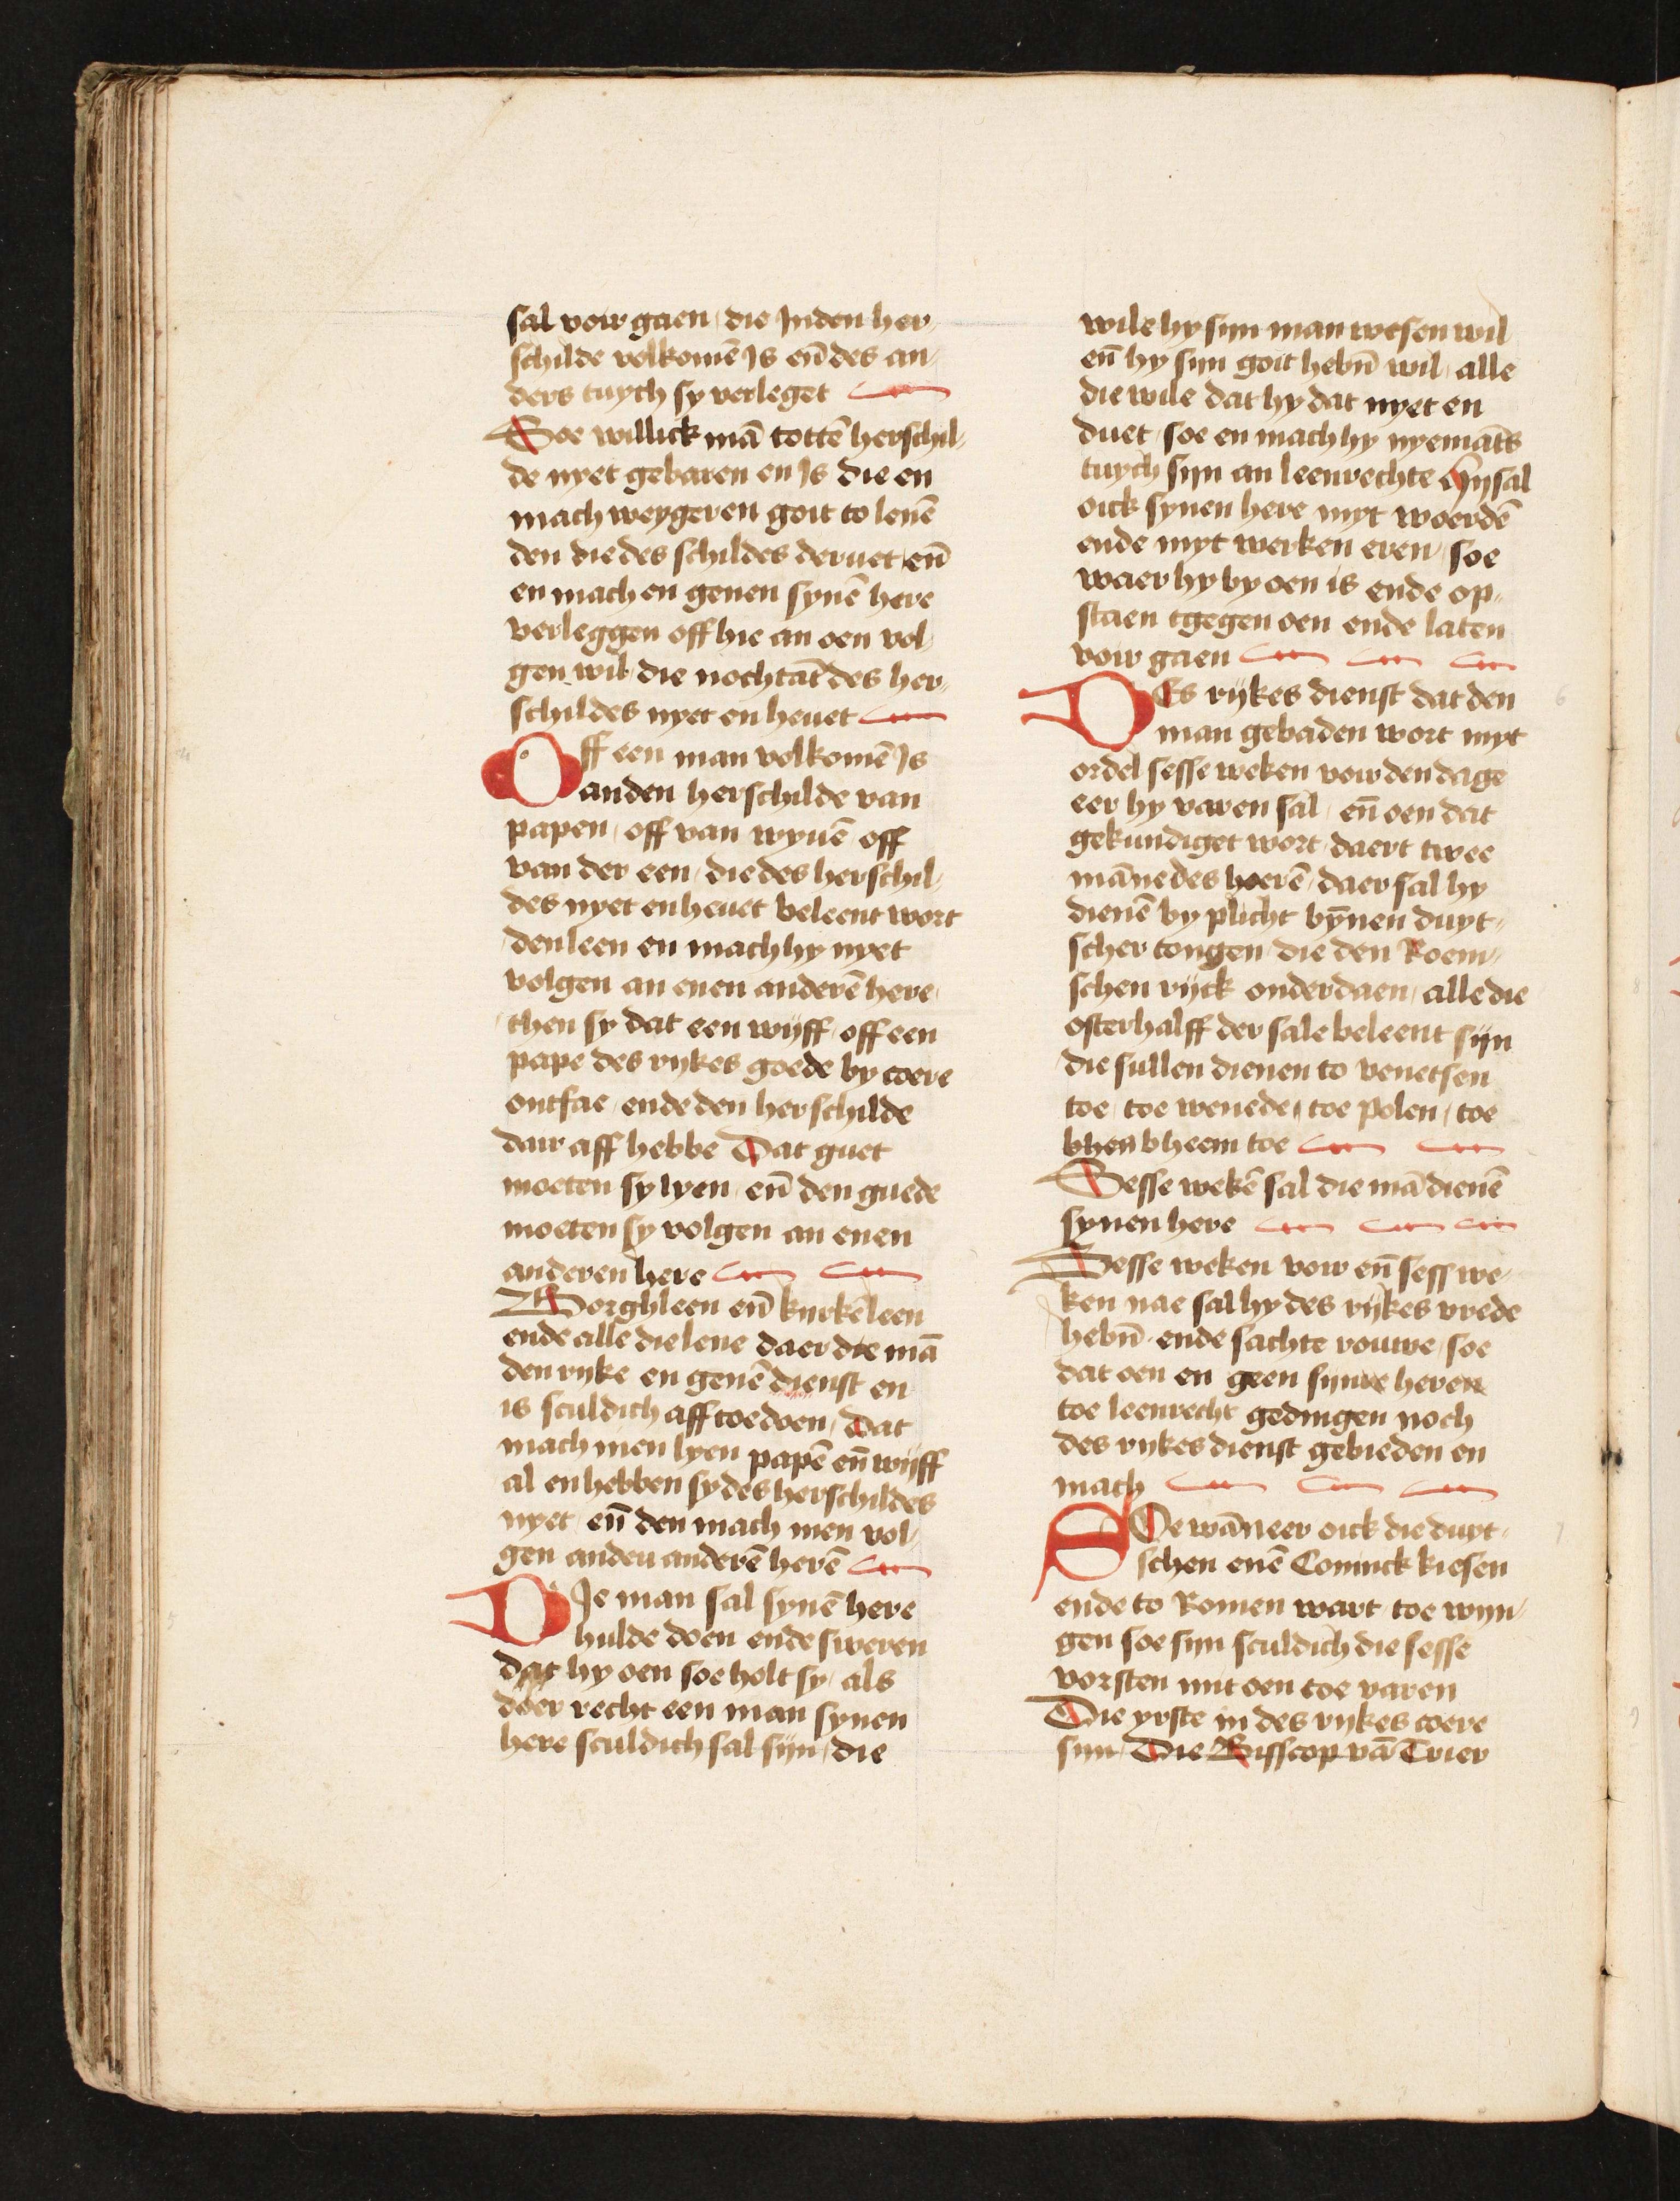 sal voir gaen / die Jnden her-
schilde volkomē Js en̄ des an-
ders tuych sy verleget
Soe willick mā tottē herschil-
de nyet gebaren en Js die en
mach weygeren goit to lenē
den die des schildes deruet / en̄
en mach en genen synē here
verleggen off hie an oen vol-
gen wil / die nochtāt des her-
schildes nyet en heuet
Off een man volkomē Js
anden herschilde van
papen / off van wyuē off
van der een / die des herschil-
des nyet en heuet beleent wort
den leen en mach hy nyet
volgen an enen anderē here /
then sy dat een wijff / off een
pape des rykes goede by coere
ontfae / ende den herschilde
dair aff hebbe Dat guet
moeten sy lyen / en̄ den guede
moeten sy volgen an enen
anderen here
Borghleen en̄ kirkēleen
ende alle die lene daer die mā
den rijke en genē dienst en
is sculdich aff toe doen / Dat
mach men lyen papē en̄ wijff
al en hebben sy des herschildes
nyet / en̄ den mach men vol-
gen anden anderē herē
DJe man sal synē here
hulde doen ende sweren
dat hy oen soe holt sy / als
doer recht een man synen
here sculdich sal sijn / die
wile hy sijn man wesen wil
en̄ hy sijn goit hebn̄ wil / alle
die wile dat hy dat nyet en
duet / soe en mach hy nyemāts
tuych sijn an leenrechte Hij sal
oick synen here myt woerdē
ende myt werken eren / soe
waer hy by oen is ende op-
staen tgegen oen ende laten
voir gaen
DEs rijkes dienst dat den
man gebaden wort myt
ordel sesse weken voir den dage
eer hy varen sal / en̄ oen dat
gekundiget wort / daert twee
māne des hoerē / daer sal hy
dienē by plicht bȳnen duyt-
scher tongen / die den Roem-
schen rijck onderdaen / alle die
osterhalff der sale beleent sijn
die sullen dienen to venetsen
toe / toe wenede / toe polen / toe
bhen bheem toe
Sesse wekē sal die mā dienē
synen here
Sesse weken voir en̄ sess we-
ken nae sal hy des rijkes vrede
hebn̄ / ende sachte rouwe / soe
dat oen en geen sijnre heren
toe leenrecht gedingen noch
des rijkes dienst gebieden en
mach
SOe wāneer oick die duyt-
schen enē Coninck kiesen
ende to Romen wart / toe wyn-
gen soe sijn sculdich die sesse
vorsten mit oen toe varen
Die yrste in des rijkes coere
sijn / Die Bisscop vā Trier